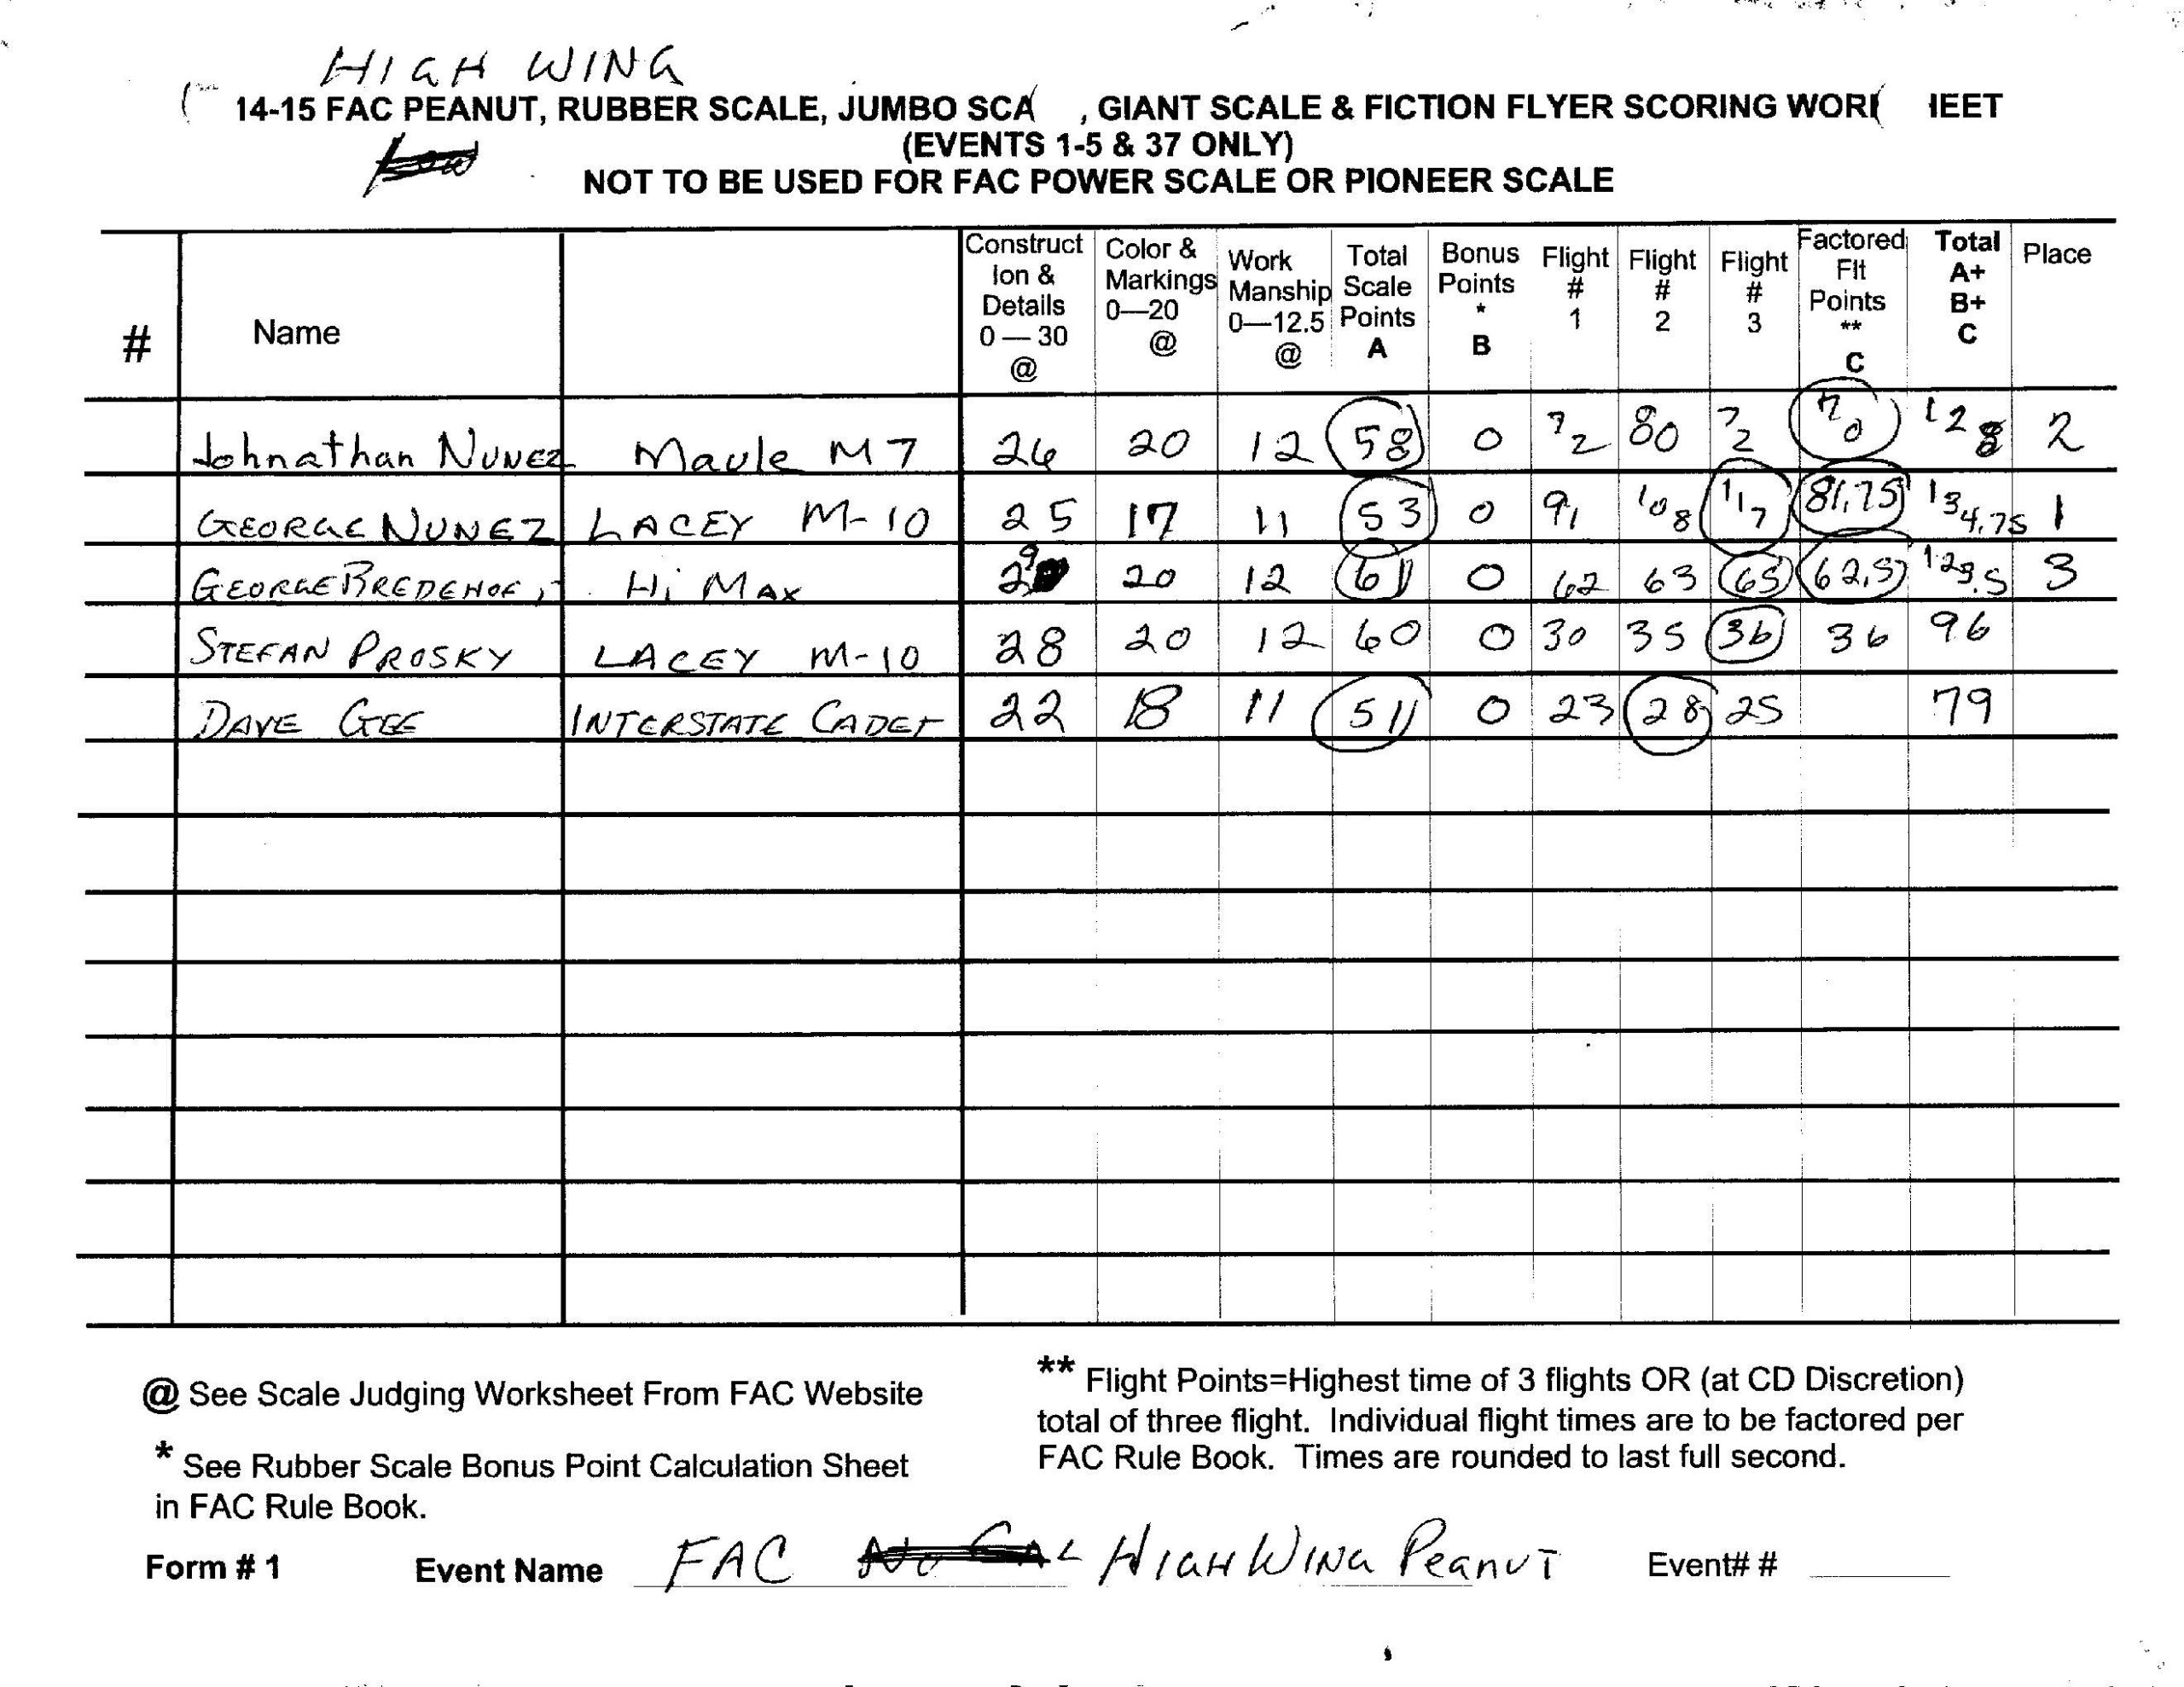 HIGH WING
14-15 FAC PEANUT, RUBBER SCALE, JUMBO SCA , GIANT SCALE & FICTION FLYER SCORING WORK IEET
(EVENTS 1-5 & 37 ONLY)
NOT TO BE USED FOR FAC POWER SCALE OR PIONEER SCALE
# Name Construct Ion & Details 0 — 30 @ Color & Markings 0—20 @ Work Manship 0—12.5 @ Total Scale Points A Bonus Points * B Flight # 1 Flight # 2 Flight # 3 Factored Flt Points ** C Total A+ B+ C Place
Johnathan Nunez Maule M7 26 20 12 58 0 72 80 72 70 128 2
GEORGE NUNEZ LACEY M-10 25 17 11 53 0 91 108 117 81,75 134.75 1
GEORGE BREDEHOFT Hi MAX 29 20 12 61 0 62 63 65 62,5 123.5 3
STEFAN PROSKY LACEY M-10 28 20 12 60 0 30 35 36 36 96
DAVE GEE INTERSTATE CADET 22 18 11 51 0 23 28 25 79
@ See Scale Judging Worksheet From FAC Website
* See Rubber Scale Bonus Point Calculation Sheet
in FAC Rule Book.
** Flight Points=Highest time of 3 flights OR (at CD Discretion)
total of three flight. Individual flight times are to be factored per
FAC Rule Book. Times are rounded to last full second.
Form # 1 Event Name FAC HIGH WING PeanuT Event# #